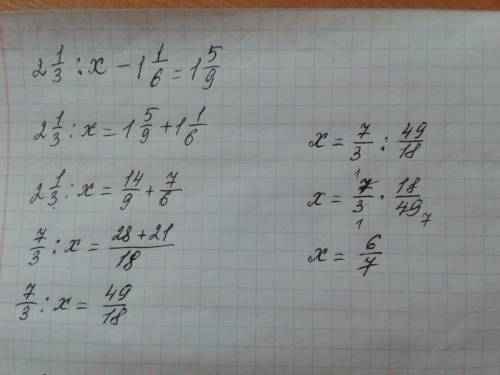 2 1/3 : x − 1 1/6 = 1 5/9
2 1/3 : x = 1 5/9 + 1 1/6
2 1/3 : x = 14/9 + 7/6
7/3 : x = (28 + 21)/18
7/3 : x = 49/18
x = 7/3 : 49/18
x = 7/3 · 18/49 1 1 7
x = 6/7